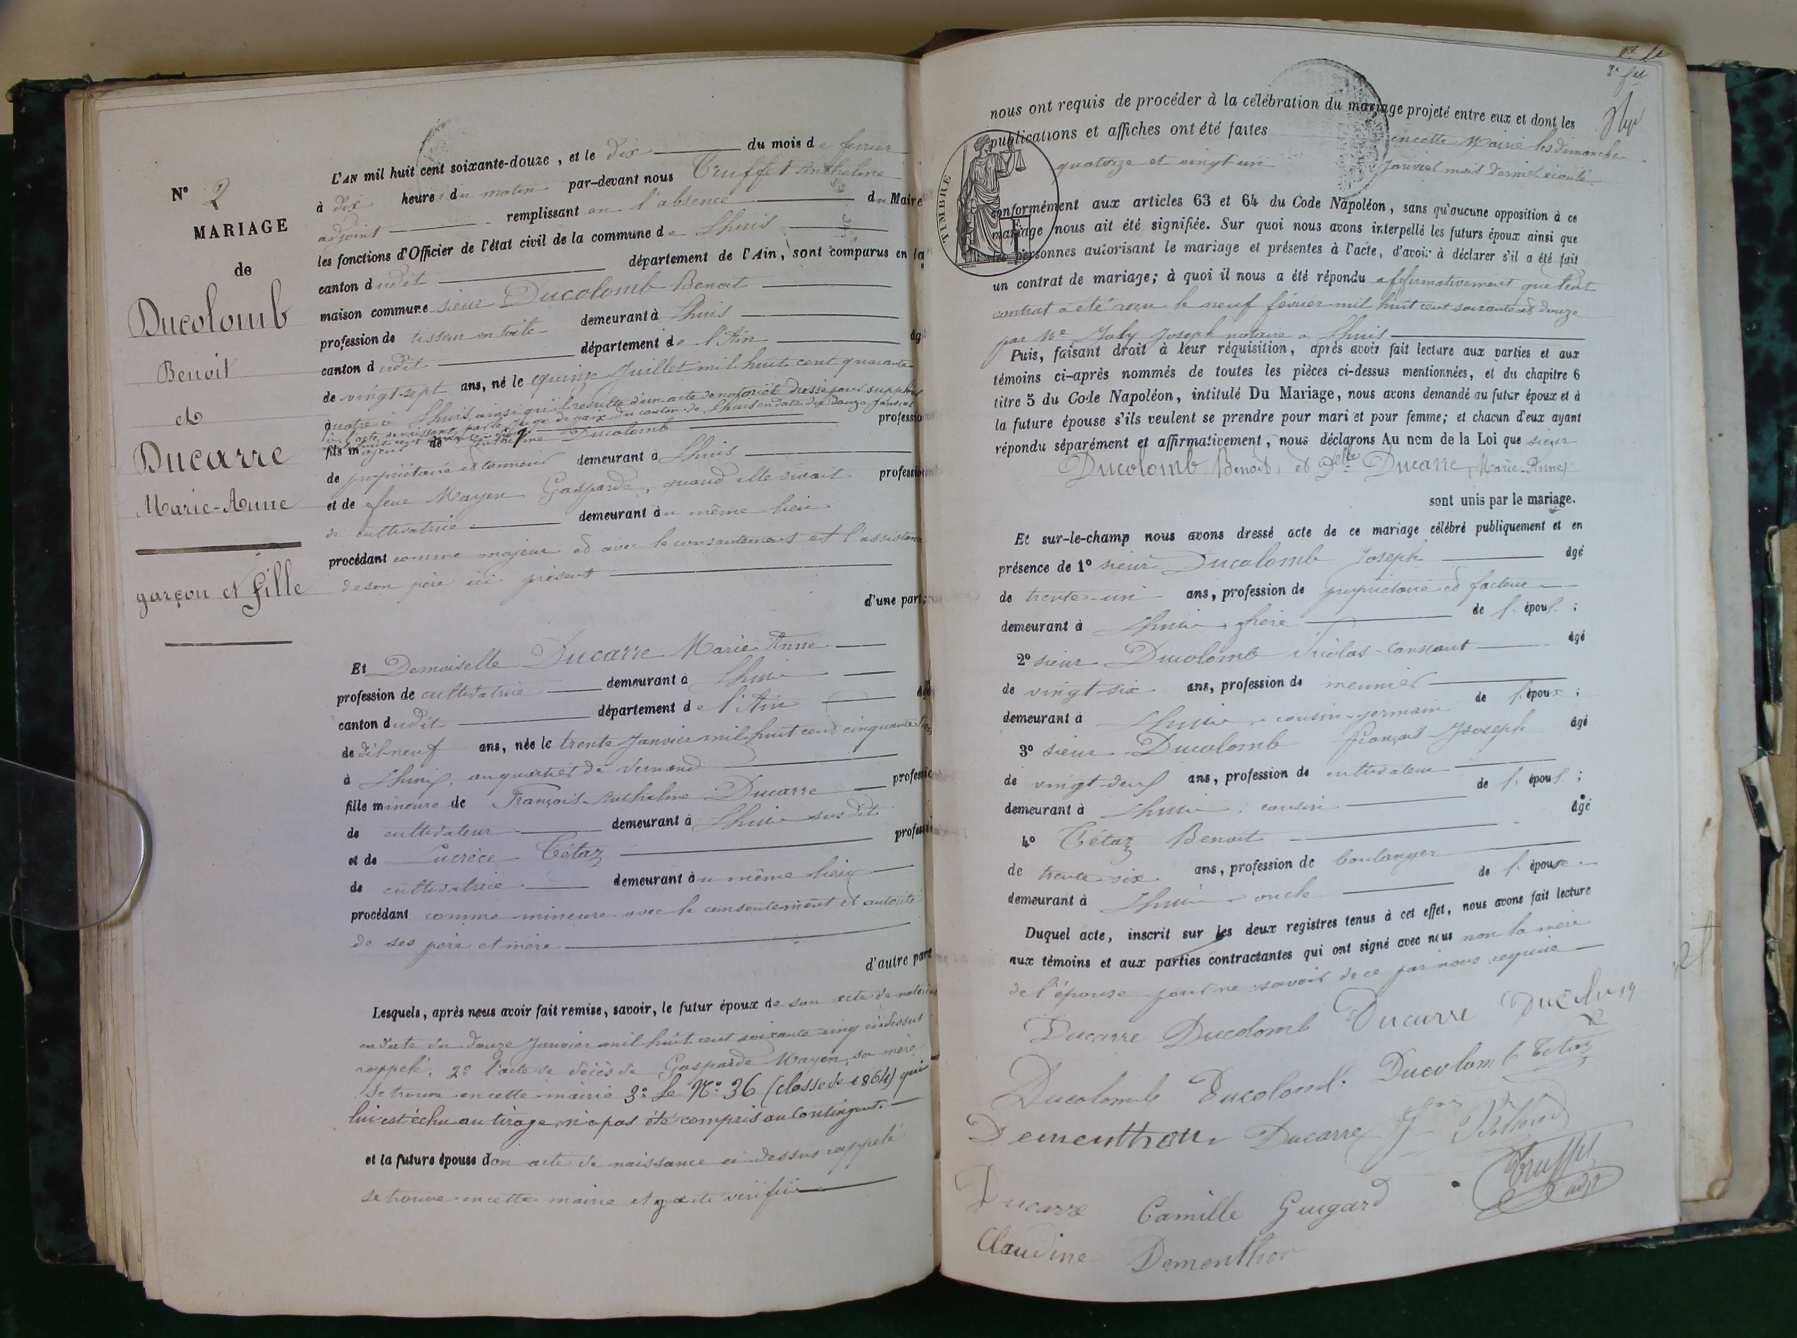 N° 2
MARIAGE
de
Ducolomb
Benoit
et
Ducarre
Marie-Anne
garçon et fille
L'AN mil huit cent soixante-douze, et le dix du mois de février
à dix heures du matin par-devant nous Truffet Anthelme
adjoint remplissant en l'absence du Maire
les fonctions d'Officier de l'état civil de la commune de Lhuis
canton dudit département de l'Ain, sont comparus en la
maison commune sieur Ducolomb Benoit
profession de tisseur en toile demeurant à Lhuis
canton dudit département de l'Ain âgé
de vingt-sept ans, né le quinze Juillet mil huit cent quarante
quatre à Lhuis ainsi qu'il résulte d'un acte de notoriété dressé pour suppléer
son acte de naissance par le Juge de paix du canton de Lhuis en date du douze Janvier
fils majeur de Ducolomb profession
de propriétaire et demeurant à Lhuis
et de feue Mayen Gasparde, quand elle vivait profession
de cultivatrice demeurant au même lieu
procédant comme majeur et avec le consentement et l'assistance
de son père ici présent
d'une part;
Et Demoiselle Ducarre Marie-Anne
profession de cultivatrice demeurant à Lhuis
canton dudit département de l'Ain âgée
de dix-neuf ans, née le trente Janvier mil huit cent cinquante
à Lhuis, au quartier de
fille mineure de François-Anthelme Ducarre profession
de cultivateur demeurant à Lhuis susdit
et de Lucrèce Tétaz profession
de cultivatrice demeurant au même lieu
procédant comme mineure avec le consentement et autorité
de ses père et mère
d'autre part
Lesquels, après nous avoir fait remise, savoir, le futur époux de son acte de notoriété
en date du douze Janvier mil huit cent soixante cinq ci-dessus
rappelé. 2° l'acte de décès de Gasparde Mayen, sa mère
se trouve en cette mairie 3° Le N° 36 (classe de 1864) qui
lui est échu au tirage, n'a pas été compris au contingent.
et la future épouse son acte de naissance ci-dessus rappelé
se trouve en cette mairie et y a été vérifié
nous ont requis de procéder à la célébration du mariage projeté entre eux et dont les
publications et affiches ont été faites en cette Mairie les dimanches
quatorze et vingt-un Janvier mois dernier écoulé
TIMBRE
conformément aux articles 63 et 64 du Code Napoléon, sans qu'aucune opposition à ce
mariage nous ait été signifiée. Sur quoi nous avons interpellé les futurs époux ainsi que
les personnes autorisant le mariage et présentes à l'acte, d'avoir à déclarer s'il a été fait
un contrat de mariage; à quoi il nous a été répondu affirmativement que ledit
contrat a été reçu le neuf février mil huit cent soixante et douze
par Me Joly Joseph notaire à Lhuis
Puis, faisant droit à leur réquisition, après avoir fait lecture aux parties et aux
témoins ci-après nommés de toutes les pièces ci-dessus mentionnées, et du chapitre 6
titre 5 du Code Napoléon, intitulé Du Mariage, nous avons demandé au futur époux et à
la future épouse s'ils veulent se prendre pour mari et pour femme; et chacun d'eux ayant
répondu séparément et affirmativement, nous déclarons Au nom de la Loi que sieur
Ducolomb Benoit, et Delle Ducarre, Marie-Anne
sont unis par le mariage.
Et sur-le-champ nous avons dressé acte de ce mariage célébré publiquement et en
présence de 1° sieur Ducolomb Joseph âgé
de trente-un ans, profession de propriétaire et facteur
demeurant à Lhuis, frère de l'époux;
2° sieur Ducolomb Nicolas-Constant âgé
de vingt-six ans, profession de meunier
demeurant à Lhuis, cousin-germain de l'époux;
3° sieur Ducolomb François Joseph âgé
de vingt-deux ans, profession de cultivateur
demeurant à Lhuis, cousin de l'époux;
4° Tétaz Benoit âgé
de trente-six ans, profession de boulanger
demeurant à Lhuis, oncle de l'épouse
Duquel acte, inscrit sur les deux registres tenus à cet effet, nous avons fait lecture
aux témoins et aux parties contractantes qui ont signé avec nous non la mère
de l'épouse pour ne savoir de ce par nous requise
Ducarre Ducolomb Ducarre
Ducolomb Ducolomb Ducolomb Tetaz
Dementhon Ducarre
Truffet
adjt
Ducarre Camille Guigard
Claudine Dementhon